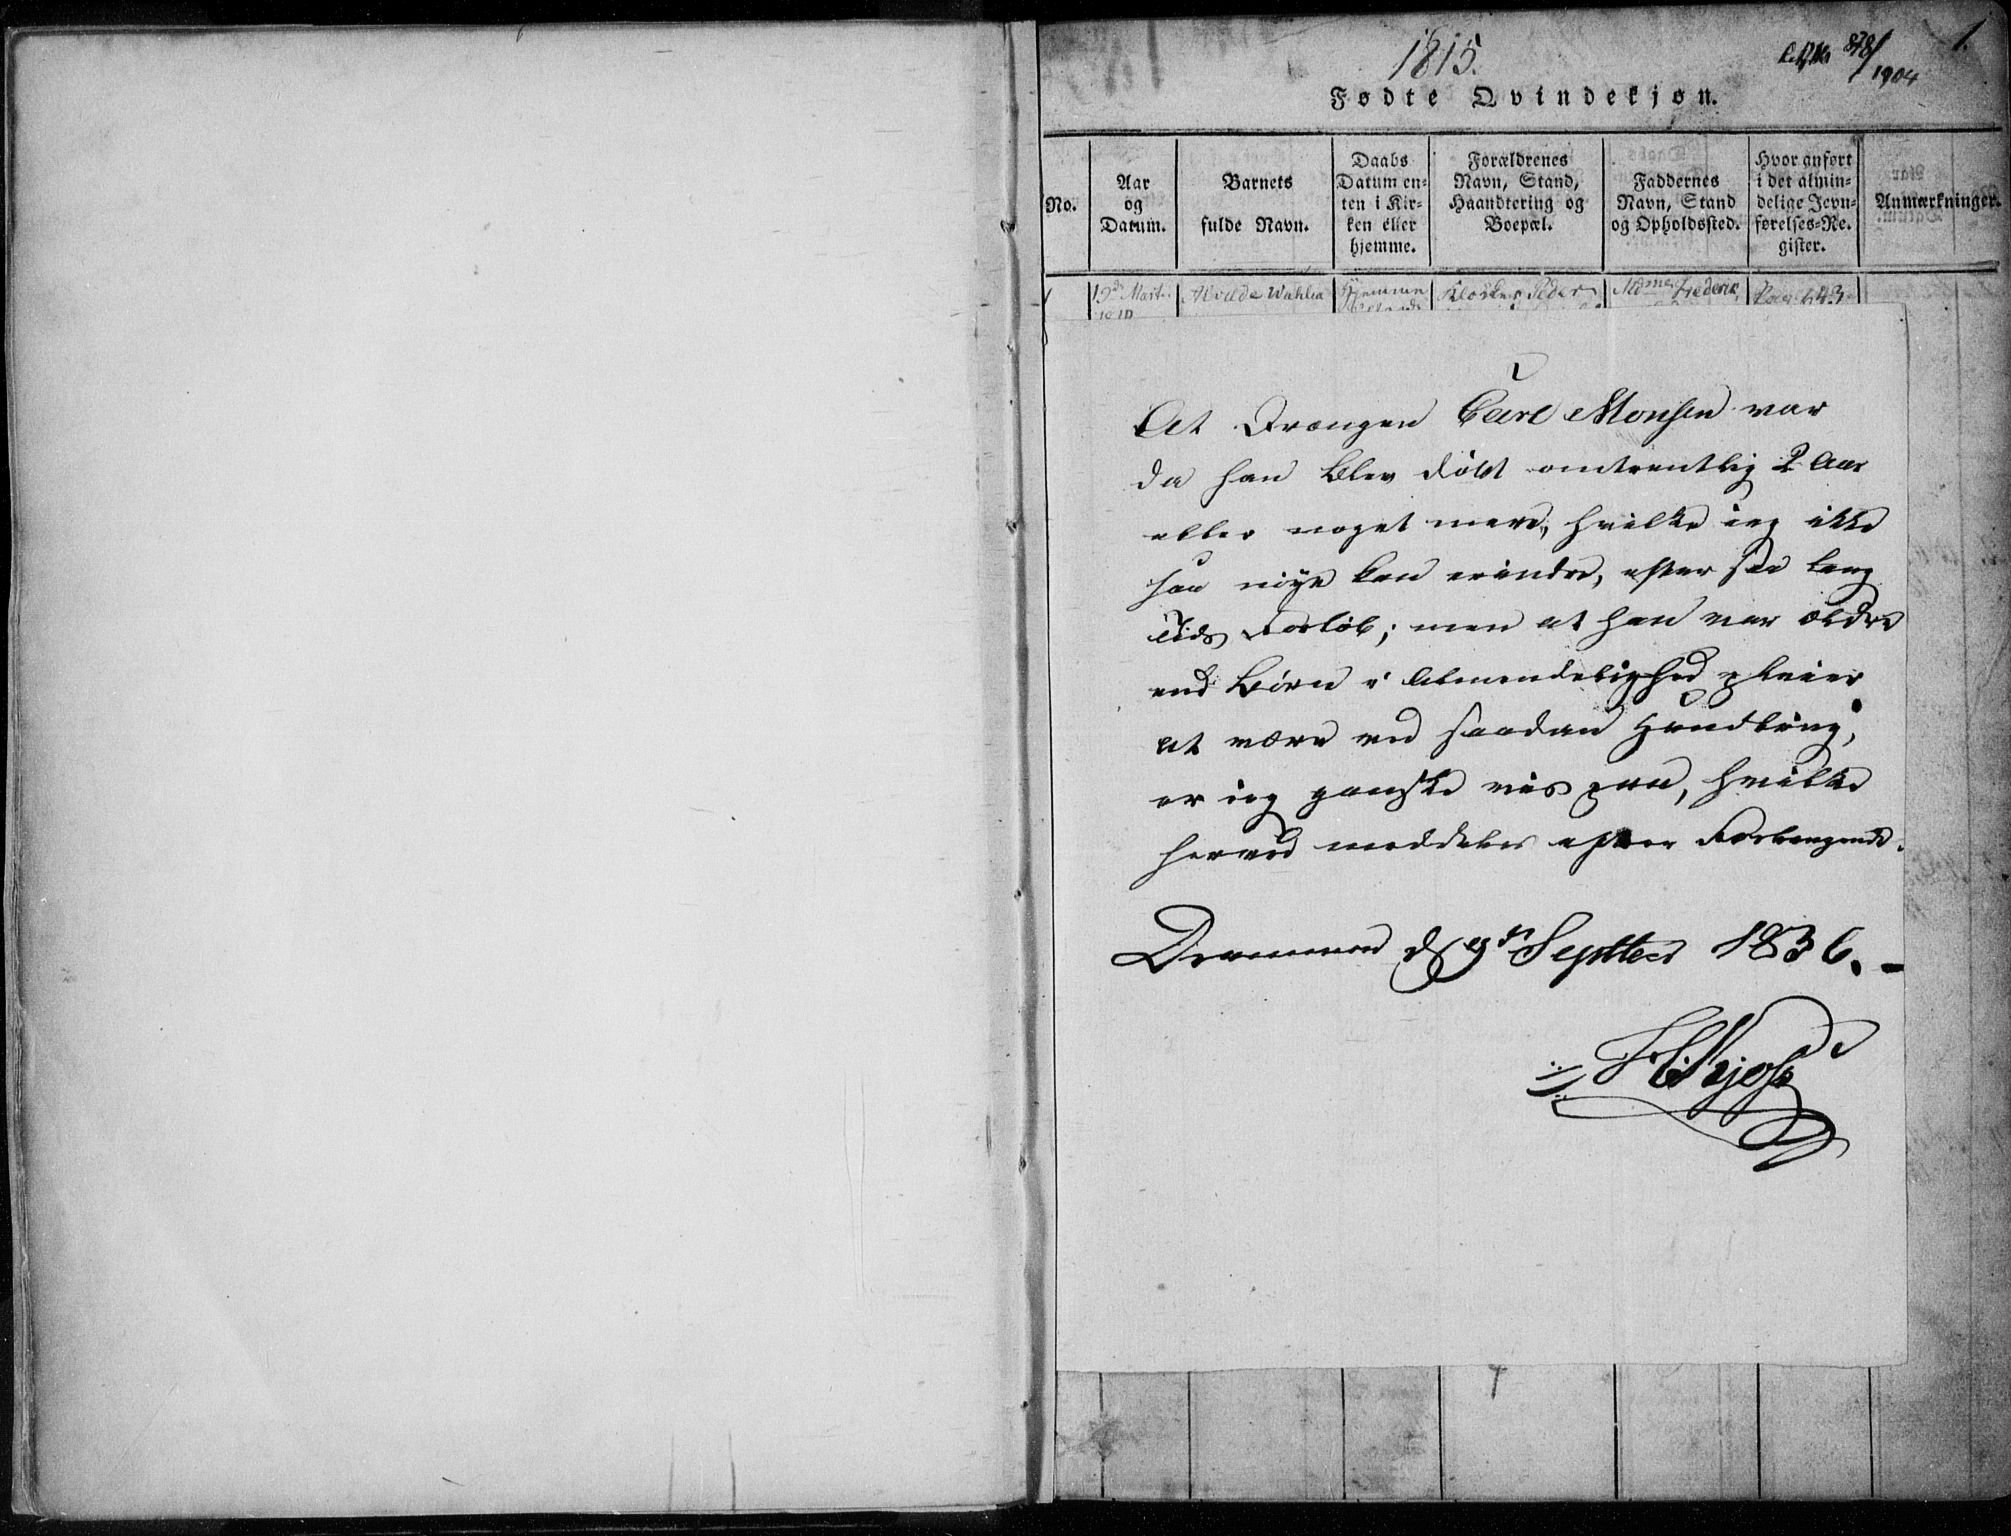 1815.
878/1904
1.
Fødte Qvindekjøn.
No.
Aar
og
Datum.
Barnets
fulde Navn.
Daabs
Datum en-
ten i Kir-
ken eller
hjemme.
Forældrenes
Navn, Stand,
Haandtering og
Boepæl.
Faddernes
Navn, Stand
og Opholdssted.
Hvor anført
i det almin-
delige Jevn-
førelses-Re-
gister.
Anmærkninger.
19de Marts Alvilde Hjemme Klokker Peder Mdme Frederik Pag. 643
At Drængen Carl Monsen var
da han blev døbt omtrentlig 2 Aar
eller noget mere, hvilke ieg ikke
saa nøye kan erindre, efter saa lang
Tids Forløb; men at han var ældre
end Børn i Almindelighed pleier
at være ved saadan Handling,
er ieg ganske vis paa, hvilke
herved meddeles efter Forlangende.
Drammen d 9de Septber 1836.